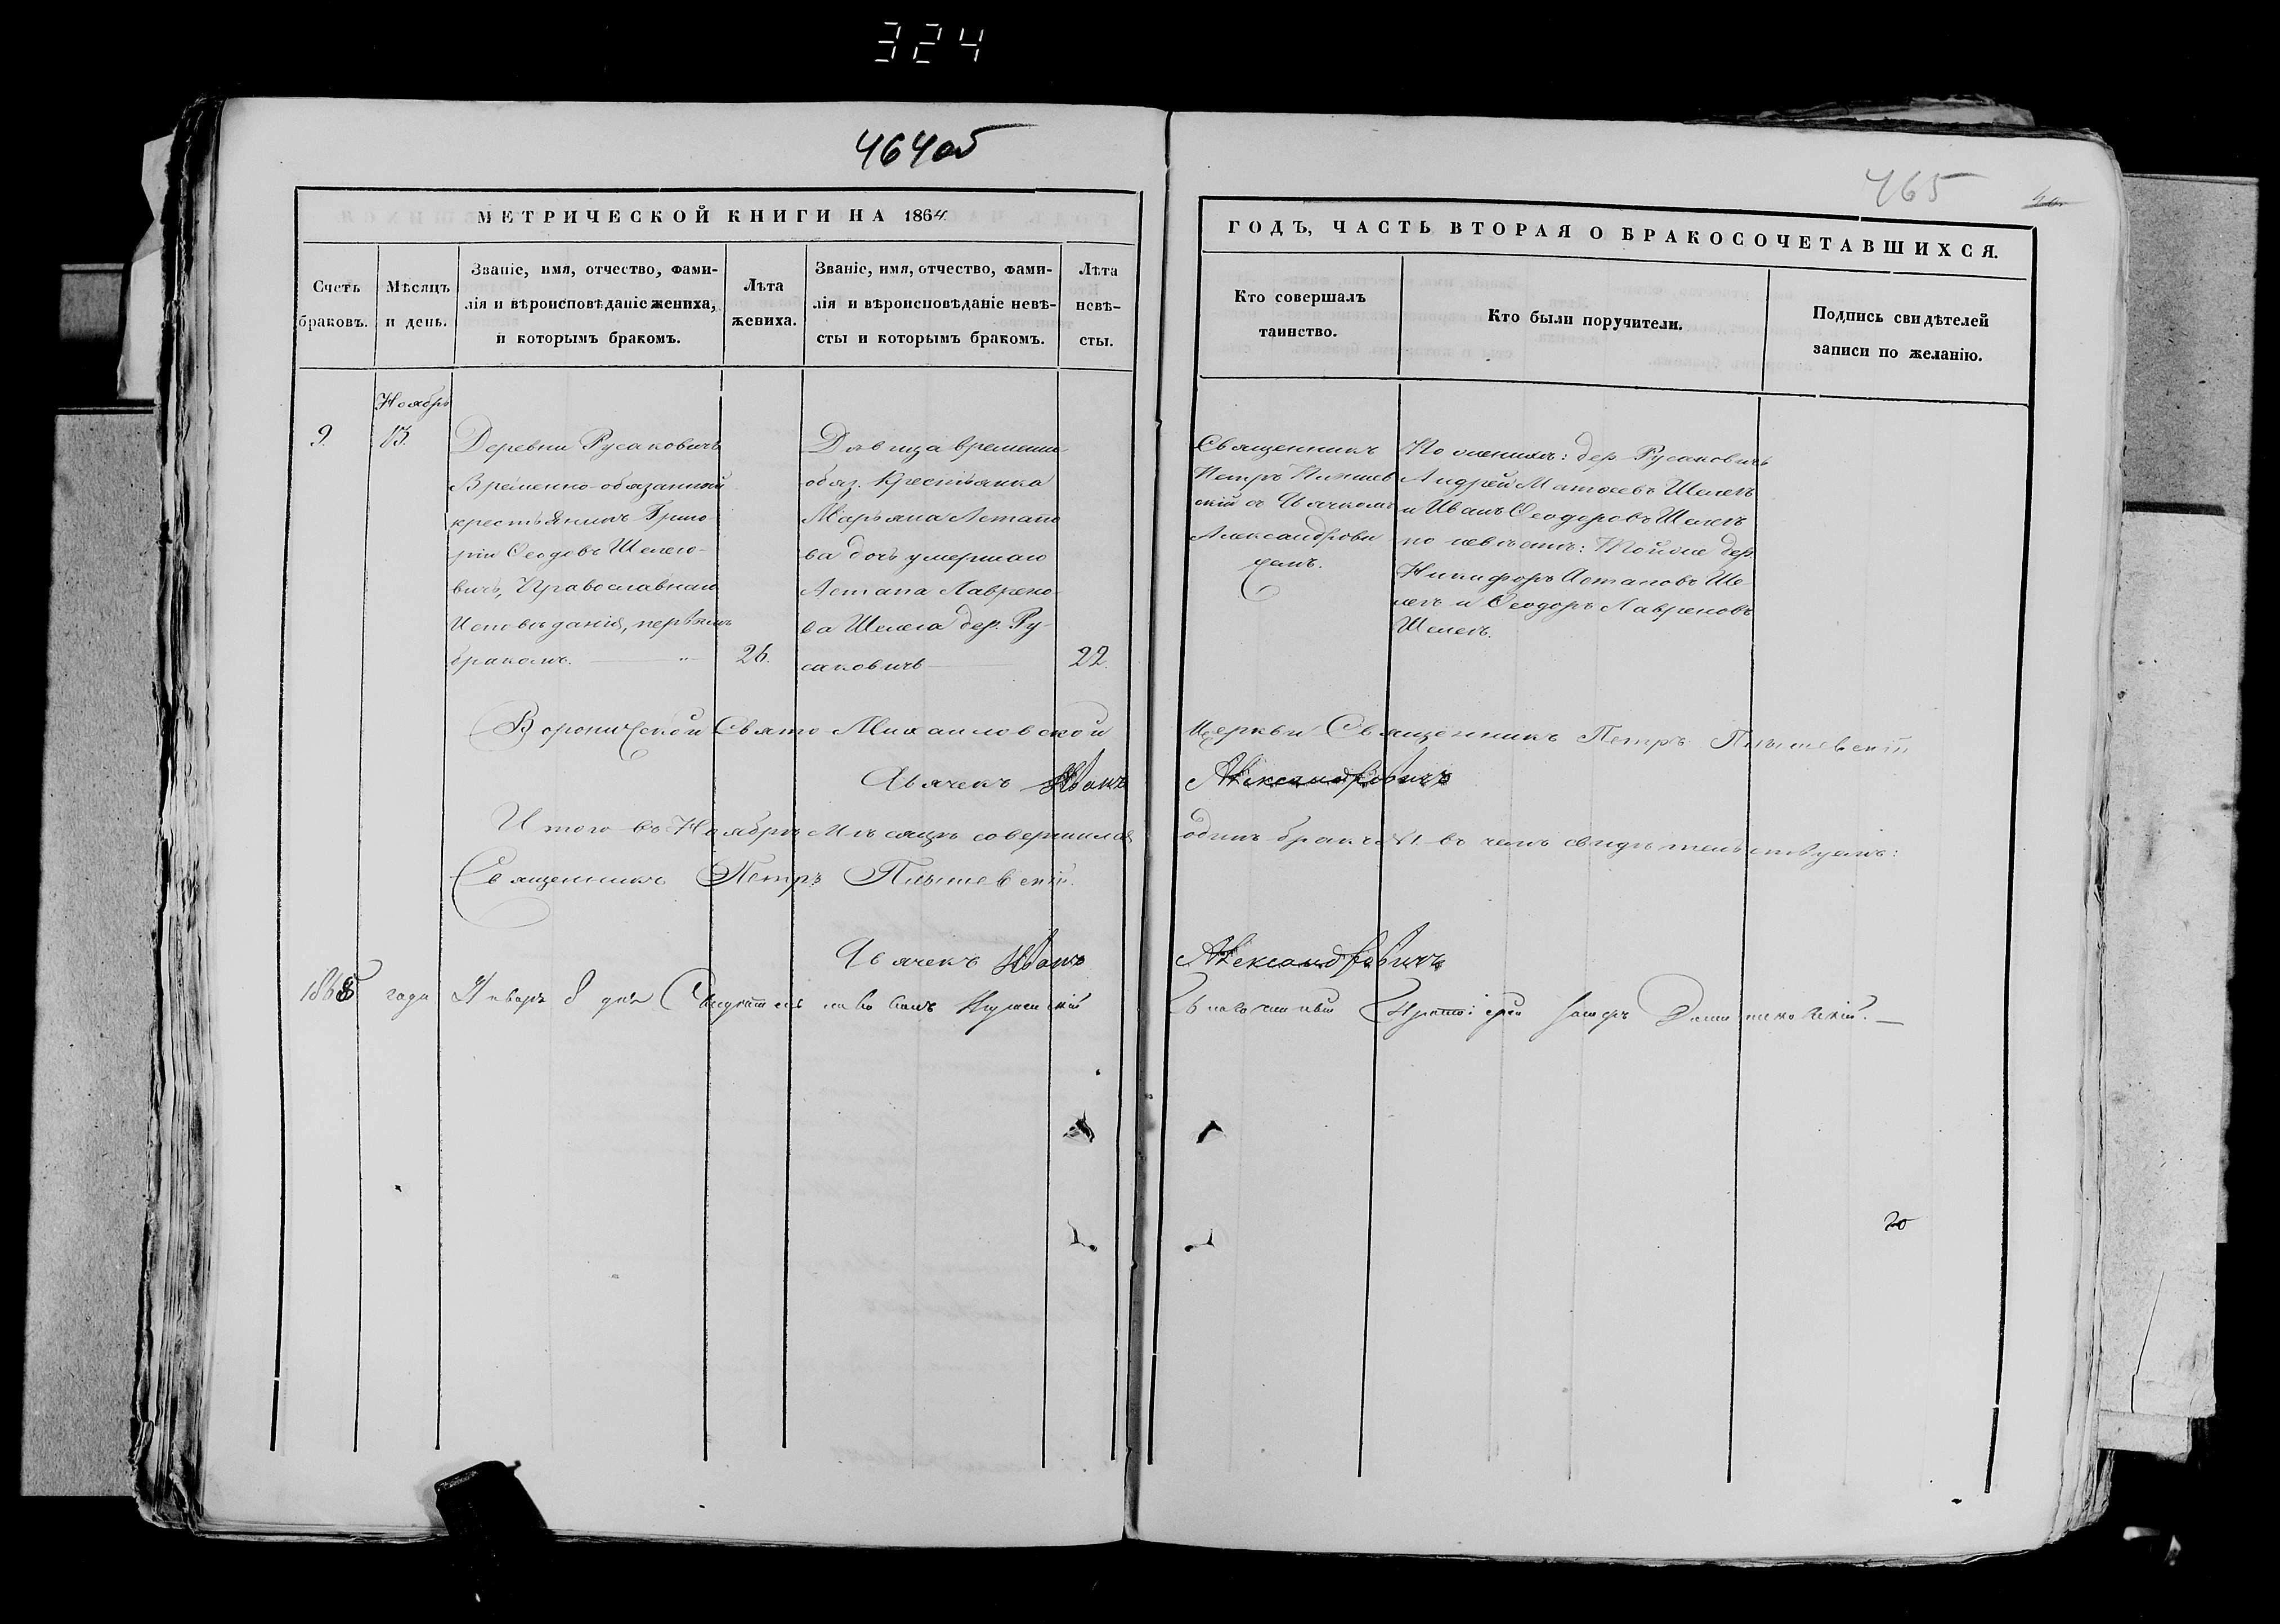 324
464об
465
МЕТРИЧЕСКОЙ КНИГИ НА 1864
ГОДЪ, ЧАСТЬ ВТОРАЯ О БРАКОСОЧЕТАВШИХСЯ.
Счетъ
браковъ.
Мѣсяцъ
и день.
Званіе, имя, отчество, фами-
лія и вѣроисповѣданіе жениха,
и которымъ бракомъ.
Лѣта
жениха.
Званіе, имя, отчество, фами-
лія и вѣроисповѣданіе невѣ-
сты и которымъ бракомъ.
Лѣта
невѣ-
сты.
Кто совершалъ
таинство.
Кто были поручители.
Подпись свидѣтелей
записи по желанію.
9.
Ноябрь
13.
Деревни Русаковичъ
Временно-обязанный
крестьянинъ Григо-
рій Ѳеодовъ Шелего-
вичъ, Православнаго
Исповѣданія, первымъ
бракомъ.
26.
Дѣвица временно-
обяз. Крестьянка
Марьяна Астапо
ва дочь умершаго
Астапа Лаврено-
ва Шелега дер. Ру-
саковичъ
22.
Священникъ
Петръ
скій съ Дьячкомъ
Александрови
чемъ.
По женихѣ: дер. Русаковичъ
Андрей Матѳеевъ Шелегъ
и Иванъ Ѳеодоровъ Шелегъ
по невѣстѣ: Той же дер.
Никифоръ Астаповъ Ше-
легъ и Ѳеодоръ Лавреновъ
Шелегъ.
Вороничской Свято-Михаиловской Церкви Священникъ Петръ
Дьячекъ Иванъ Александровичъ
Итого въ Ноябрѣ Мѣсяцѣ совершился одинъ бракъ №1. въ чемъ свидѣтельствуемъ:
Священникъ Петръ
Дьячекъ Иванъ Александровичъ
1865 года Января 8 дня
Благочинный Протоіерей
20